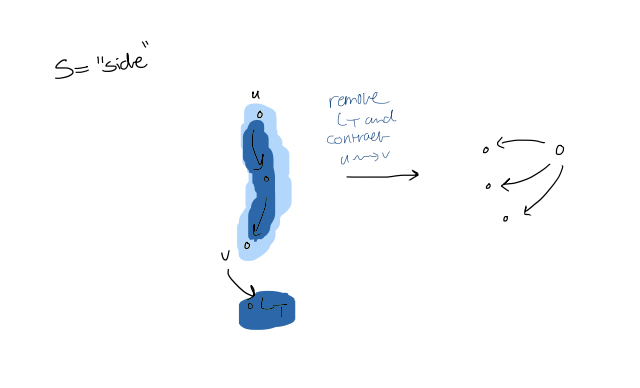 S = "side"
u
remove
L_T and
contract
u ⇝ v
v
L_T